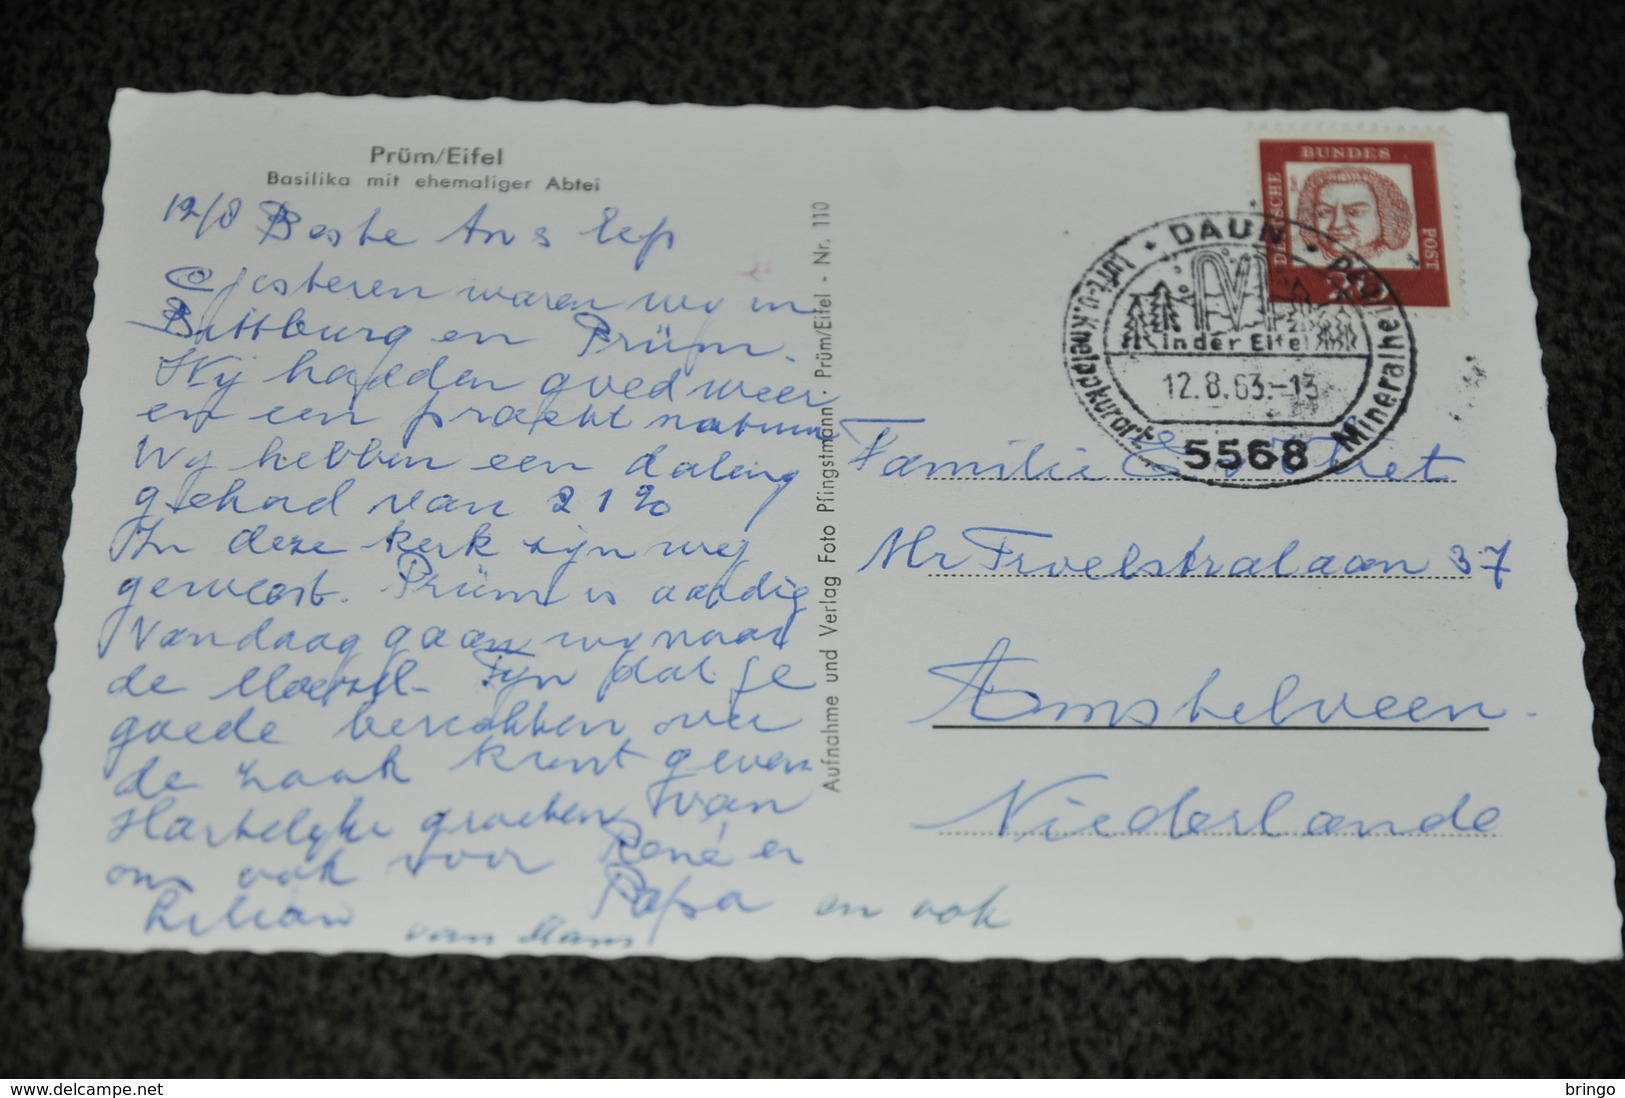 Prüm/Eifel
Basilika mit ehemaliger Abtei
12/8 Beste Ans Eep
Gisteren waren wy in
Bittburg en Prüm.
Wij hadden goed weer
en een pracht natuur
Wy hebben een daling
gehad van 21%
In deze kerk zijn wej
geweest. Prüm is aardig
Vandaag gaan wy naar
de Moezel. Fijn dat je
goede berichten over
de zaak kunt geven
Hartelyke groeten van
ons ook voor René en
Lilian Papa en ook
van Mam
Aufnahme und Verlag Foto Pfingstmann · Prüm/Eifel - Nr. 110
DEUTSCHE
BUNDES
POST
20
DAUN
in der Eifel
12.8.63.-13
Luft-u.Kneippkurort
Mineralhei
5568
Familie
Mr Troelstralaan 37
Amstelveen.
Niederlande
delcampe.net
bringo